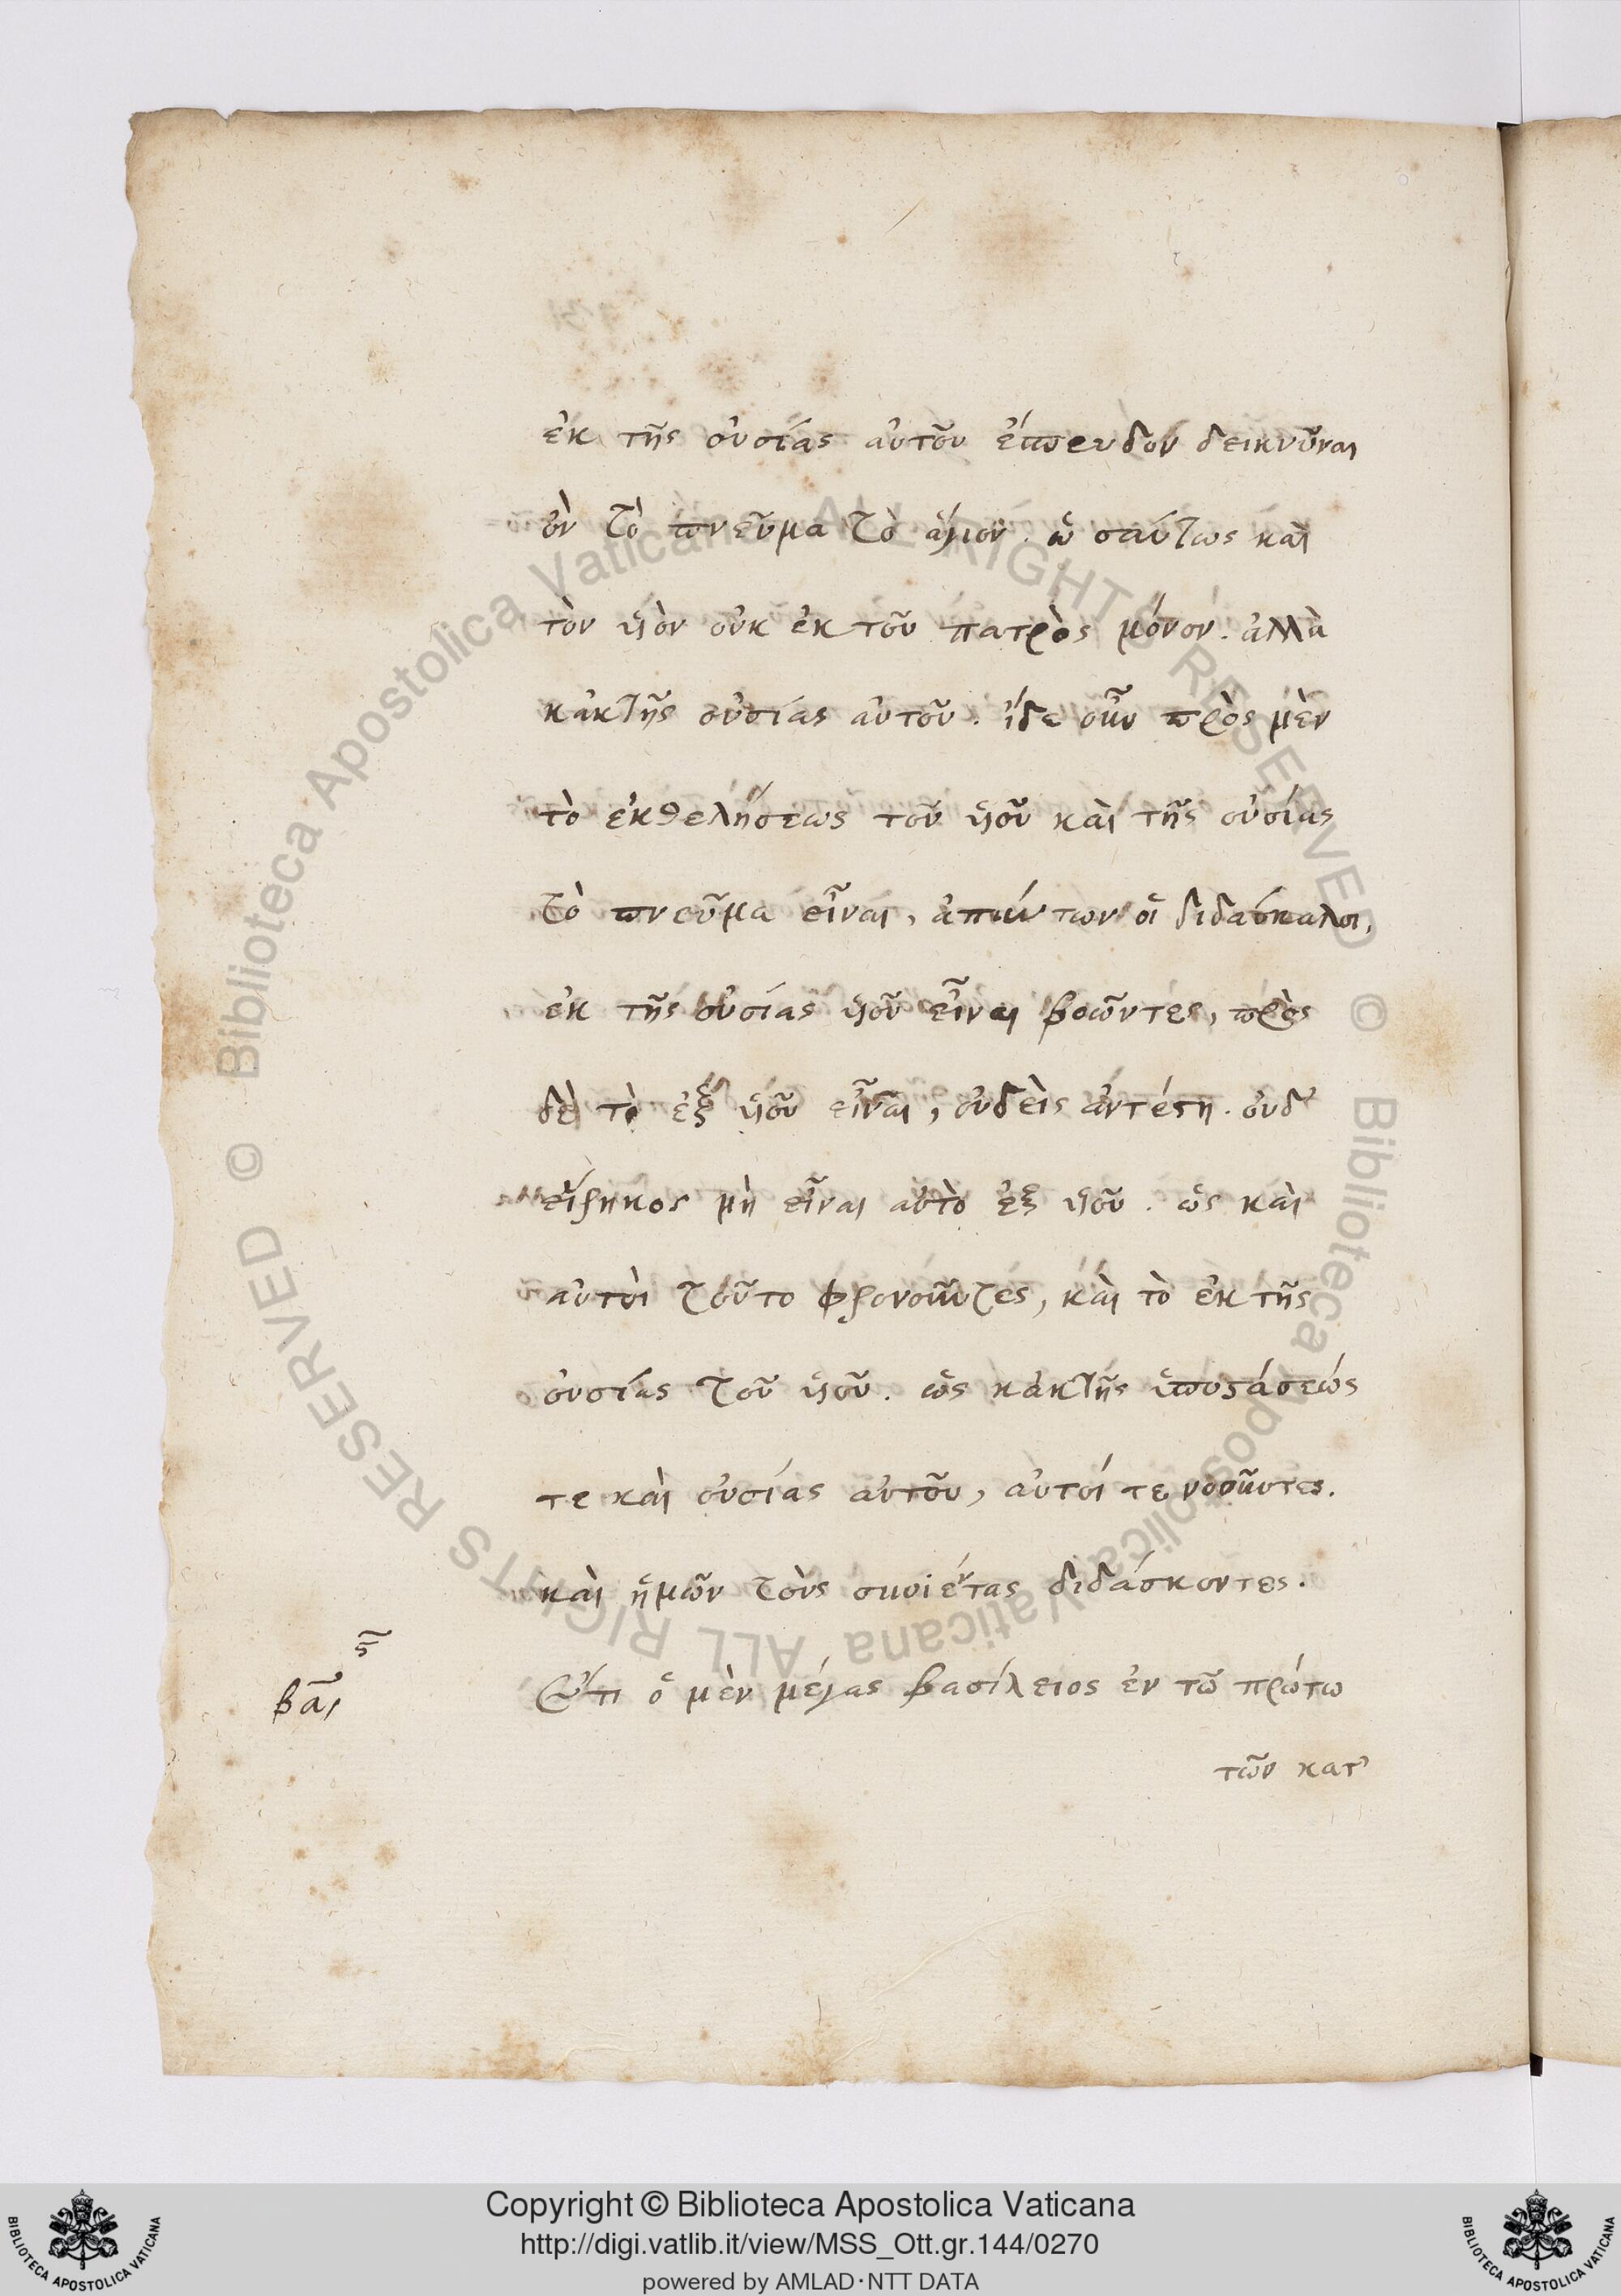 ἐκ τῆς οὐσίας αὐτοῦ ἔσπευδον δεικνῦναι
ὂν τὸ πνεῦμα τὸ ἅγιον. ὡσαύτως καὶ
τὸν ὑὸν οὐκ ἐκ τοῦ πατρὸς μόνον. ἀλλὰ
κἀκ τῆς οὐσίας αὐτοῦ. ἴδε οὖν πρὸς μὲν
τὸ ἐκ θελήσεως τοῦ ὑοῦ καὶ τῆς οὐσίας
τὸ πνεῦμα εἶναι, ἁπάντων οἱ διδάσκαλοι,
ἐκ τῆς οὐσίας ὑοῦ εἶναι βοῶντες, πρὸς
δὲ τὸ ἐξ ὑοῦ εἶναι, οὐδεὶς ἀντέστη. οὐδ'
εἴρηκος μὴ εἶναι αὐτὸ ἐξ ὑοῦ. ὡς καὶ
αὐτοὶ τοῦτο φρονοῦντες, καὶ τὸ ἐκ τῆς
οὐσίας τοῦ ὑοῦ. ὡς κἀκ τῆς ὑποστάσεώς
τε καὶ οὐσίας αὐτοῦ, αὐτοί τε νοοῦντες.
καὶ ἡμῶν τοὺς συνιέντας διδάσκοντες.
ϛ
βασ
Ὅτι ὁ μὲν μέγας βασίλειος ἐν τῶ πρώτω
τῶν κατ'
Copyright © Biblioteca Apostolica Vaticana
http://digi.vatlib.it/view/MSS_Ott.gr.144/0270
powered by AMLAD·NTT DATA
BIBLIOTECA APOSTOLICA VATICANA
BIBLIOTECA APOSTOLICA VATICANA
© Biblioteca Apostolica Vaticana ALL RIGHTS RESERVED
© Biblioteca Apostolica Vaticana ALL RIGHTS RESERVED